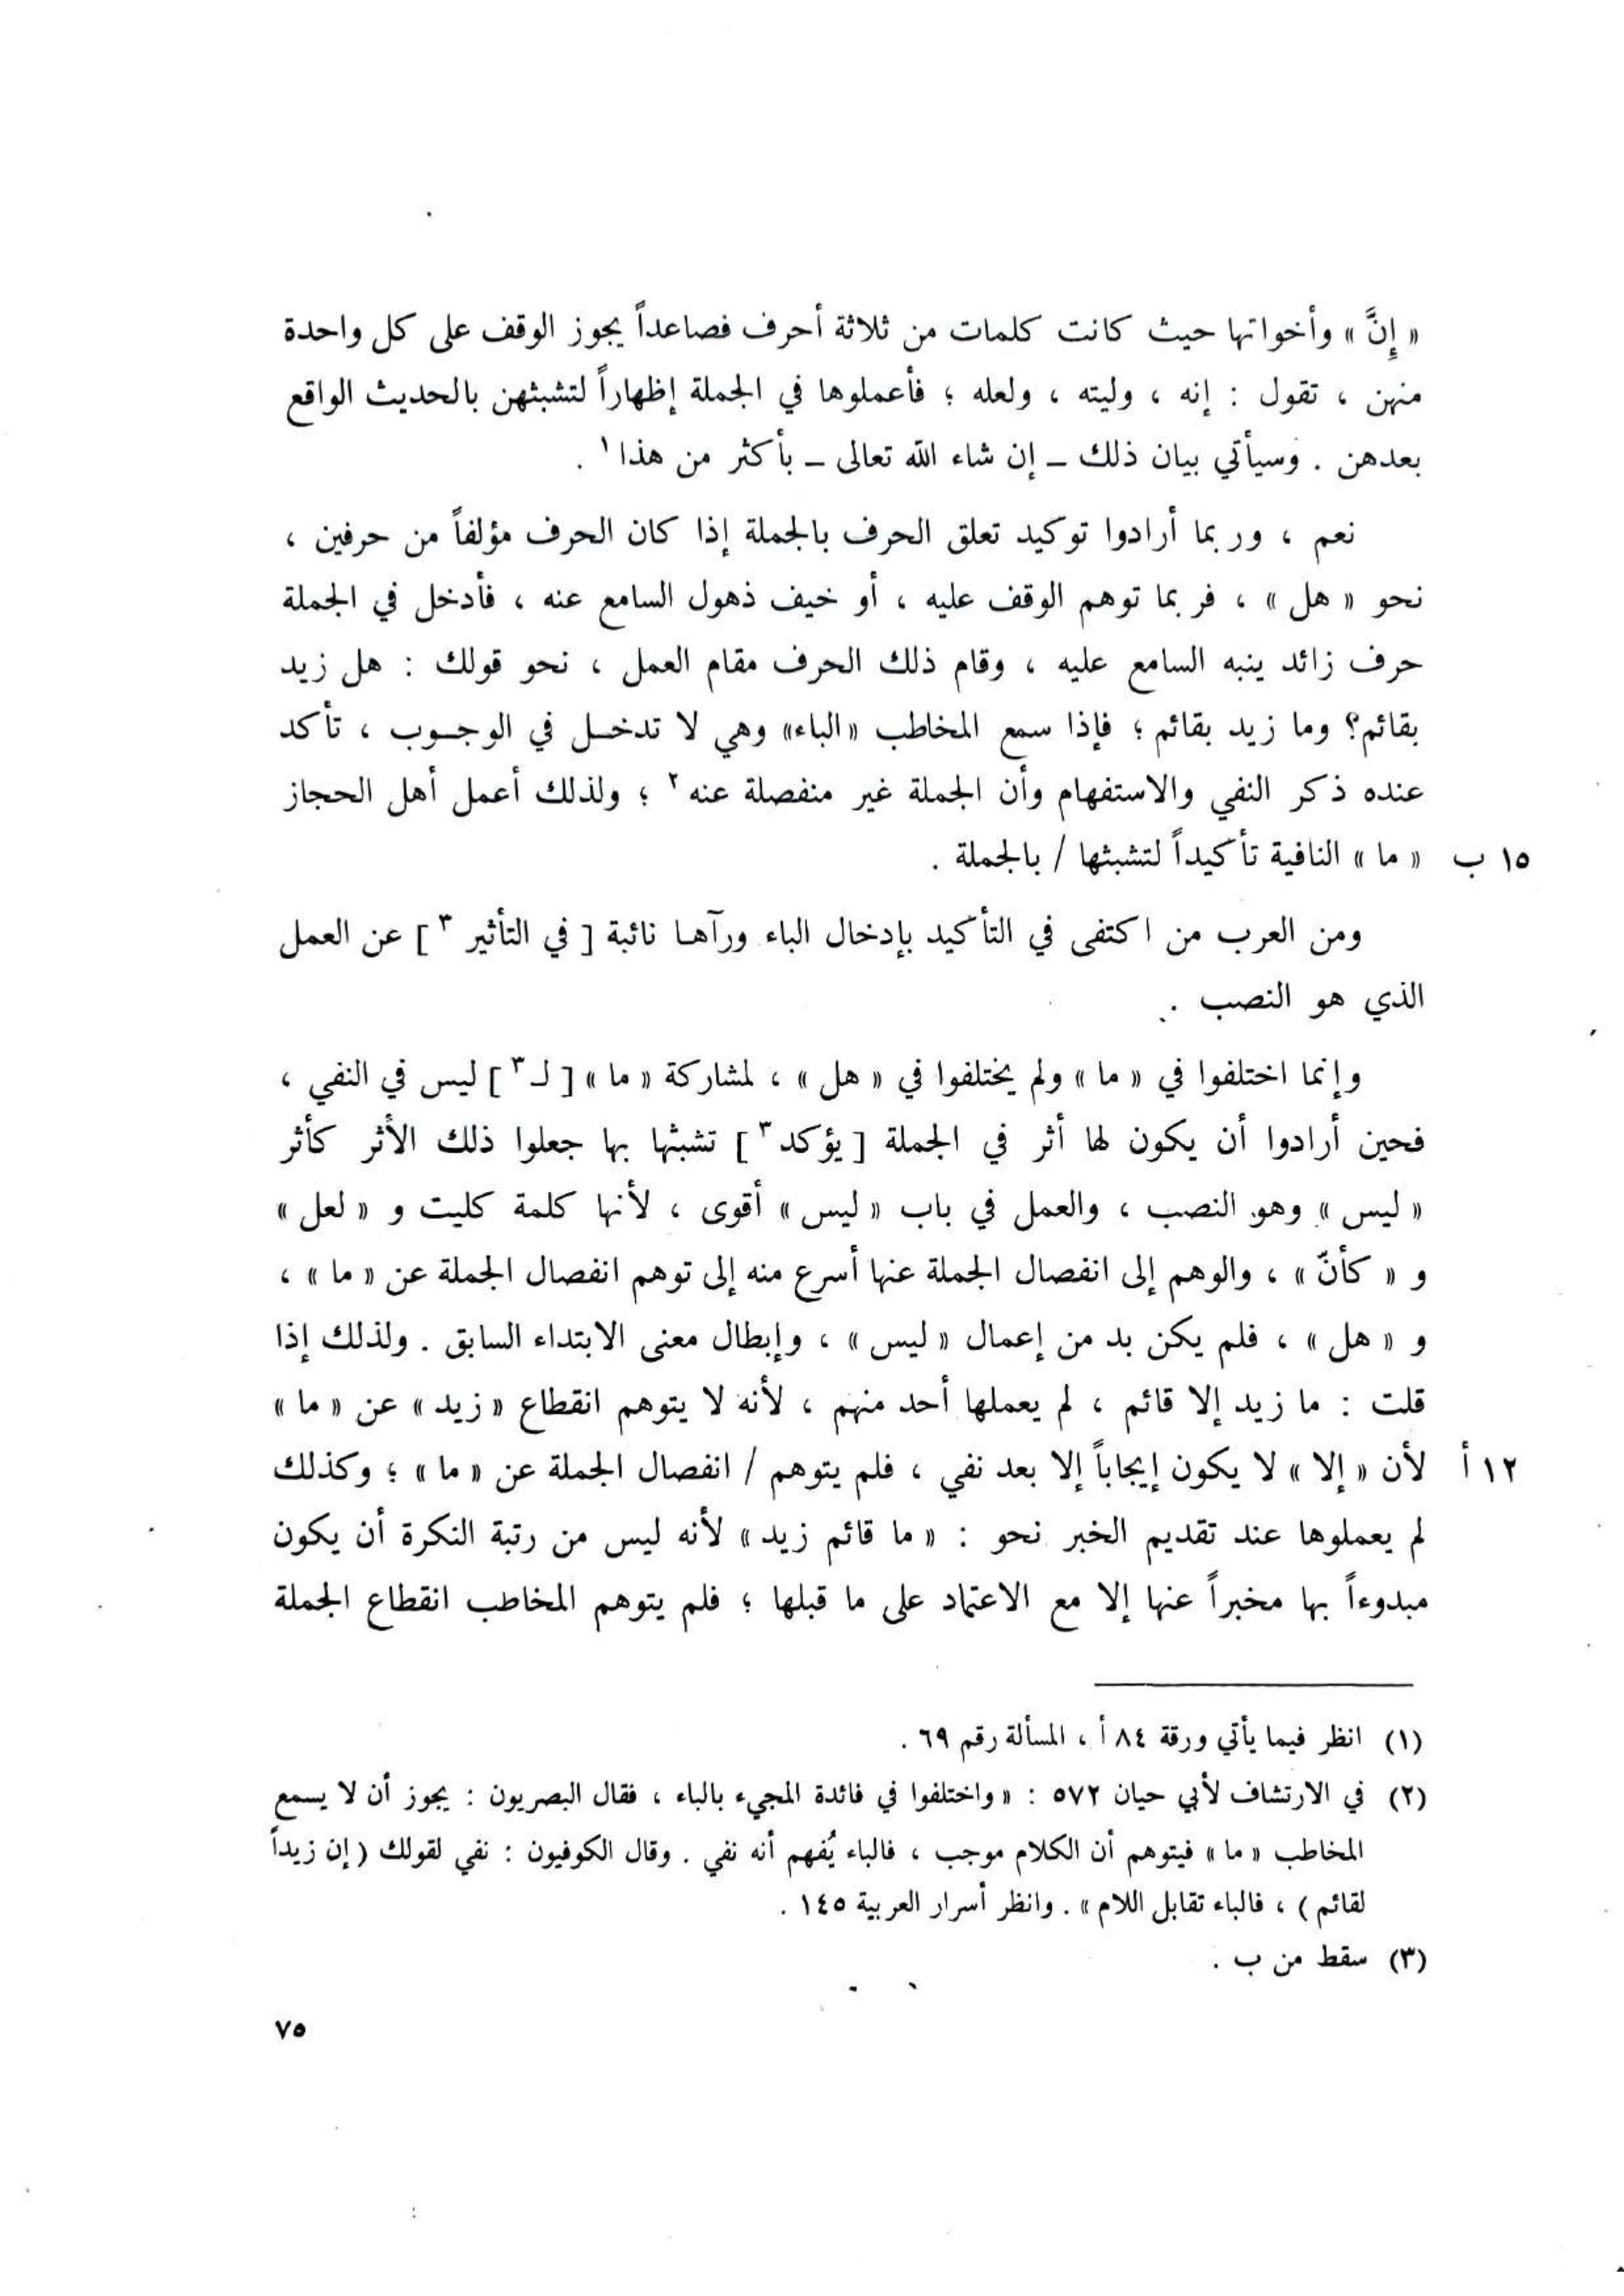 « إِنَّ » وأخواتها حيث كانت كلمات من ثلاثة أحرف فصاعداً يجوز الوقف على كل واحدة
منهن ، تقول : إنه ، وليته ، ولعله ؛ فأعملوها في الجملة إظهاراً لتشبثهن بالحديث الواقع
بعدهن . وسيأتي بيان ذلك – إن شاء الله تعالى – بأكثر من هذا ١ .
نعم ، وربما أرادوا توكيد تعلق الحرف بالجملة إذا كان الحرف مؤلفاً من حرفين ،
نحو « هل » ، فربما توهم الوقف عليه ، أو خيف ذهول السامع عنه ، فأدخل في الجملة
حرف زائد ينبه السامع عليه ، وقام ذلك الحرف مقام العمل ، نحو قولك : هل زيد
بقائم؟ وما زيد بقائم ؛ فإذا سمع المخاطب «الباء» وهي لا تدخل في الوجوب ، تأكد
عنده ذكر النفي والاستفهام وأن الجملة غير منفصلة عنه ٢ ؛ ولذلك أعمل أهل الحجاز
١٥ ب « ما » النافية تأكيداً لتشبثها / بالجملة .
ومن العرب من اكتفى في التأكيد بإدخال الباء ورآها نائبة [ في التأثير ٣ ] عن العمل
الذي هو النصب .
وإنما اختلفوا في « ما » ولم يختلفوا في « هل » ، لمشاركة « ما » [ لـ ٣ ] ليس في النفي ،
فحين أرادوا أن يكون لها أثر في الجملة [ يؤكد ٣ ] تشبثها بها جعلوا ذلك الأثر كأثر
« ليس » وهو النصب ، والعمل في باب « ليس » أقوى ، لأنها كلمة كليت و « لعل »
و « كأنّ » ، والوهم إلى انفصال الجملة عنها أسرع منه إلى توهم انفصال الجملة عن « ما » ،
و « هل » ، فلم يكن بد من إعمال « ليس » ، وإبطال معنى الابتداء السابق . ولذلك إذا
قلت : ما زيد إلا قائم ، لم يعملها أحد منهم ، لأنه لا يتوهم انقطاع « زيد » عن « ما »
١٢ أ لأن « إلا » لا يكون إيجاباً إلا بعد نفي ، فلم يتوهم / انفصال الجملة عن « ما » ؛ وكذلك
لم يعملوها عند تقديم الخبر نحو : « ما قائم زيد » لأنه ليس من رتبة النكرة أن يكون
مبدوءاً بها مخبراً عنها إلا مع الاعتماد على ما قبلها ؛ فلم يتوهم المخاطب انقطاع الجملة
(١) انظر فيما يأتي ورقة ٨٤ أ ، المسألة رقم ٦٩ .
(٢) في الارتشاف لأبي حيان ٥٧٢ : « واختلفوا في فائدة المجيء بالباء ، فقال البصريون : يجوز أن لا يسمع
المخاطب « ما » فيتوهم أن الكلام موجب ، فالباء يُفهم أنه نفي . وقال الكوفيون : نفي لقولك ( إن زيداً
لقائم ) ، فالباء تقابل اللام » . وانظر أسرار العربية ١٤٥ .
(٣) سقط من ب .
٧٥